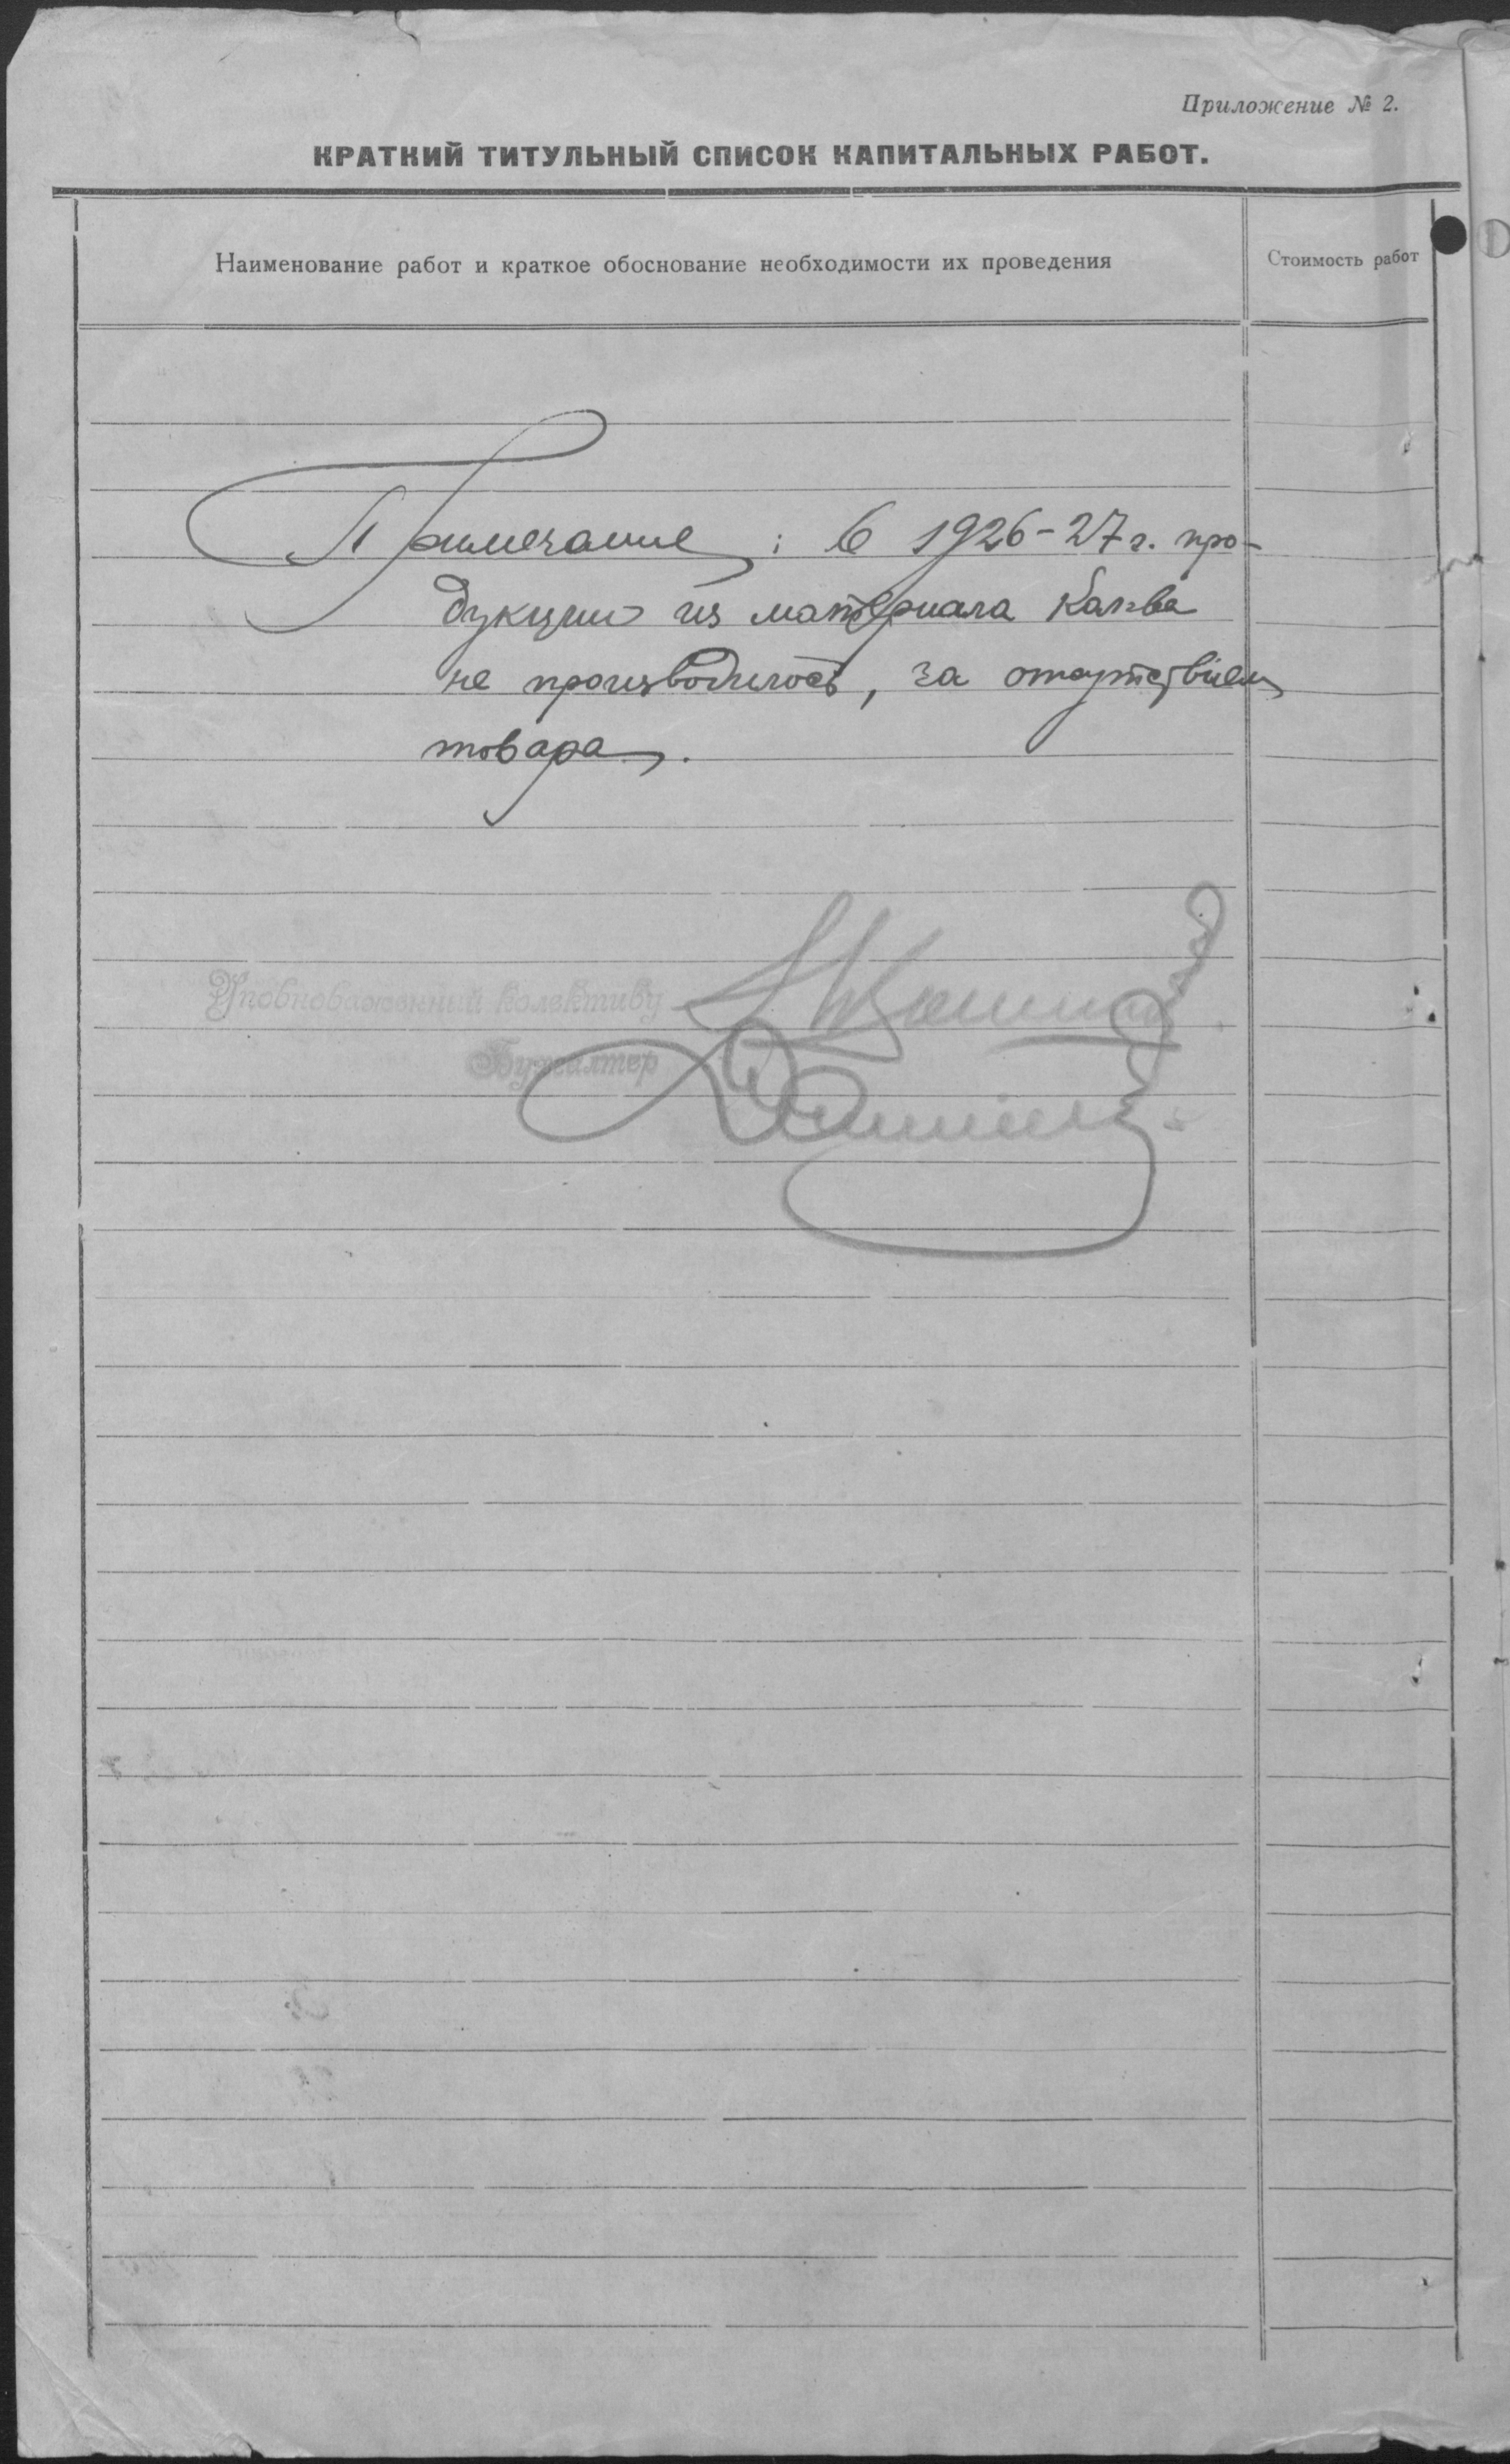 Приложение № 2.
КРАТКИЙ ТИТУЛЬНЫЙ СПИСОК КАПИТАЛЬНЫХ РАБОТ.
Наименование работ и краткое обоснование необходимости их проведения
Стоимость работ
Примечание: в 1926-27 г. про-
дукции из материала Канва
не производилось, за отсутствием
товара.
Уповноваженний колективу
Бухгалтер